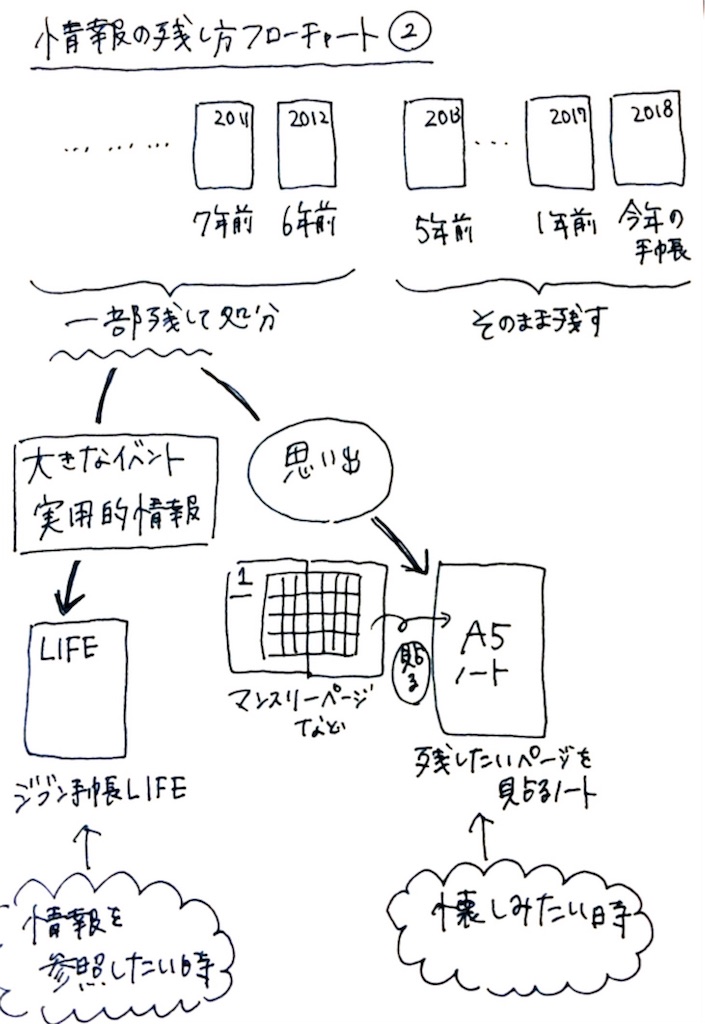 情報の残し方フローチャート②
... ... ... 2011 2012 2013 ... 2017 2018
7年前 6年前 5年前 1年前 今年の
手帳
一部残して処分 そのまま残す
大きなイベント
実用的情報
思い出
1
貼る
LIFE
A5
ノート
マンスリーページ
など
残したいページを
貼るノート
ジブン手帳LIFE
情報を
参照したい時
懐しみたい時